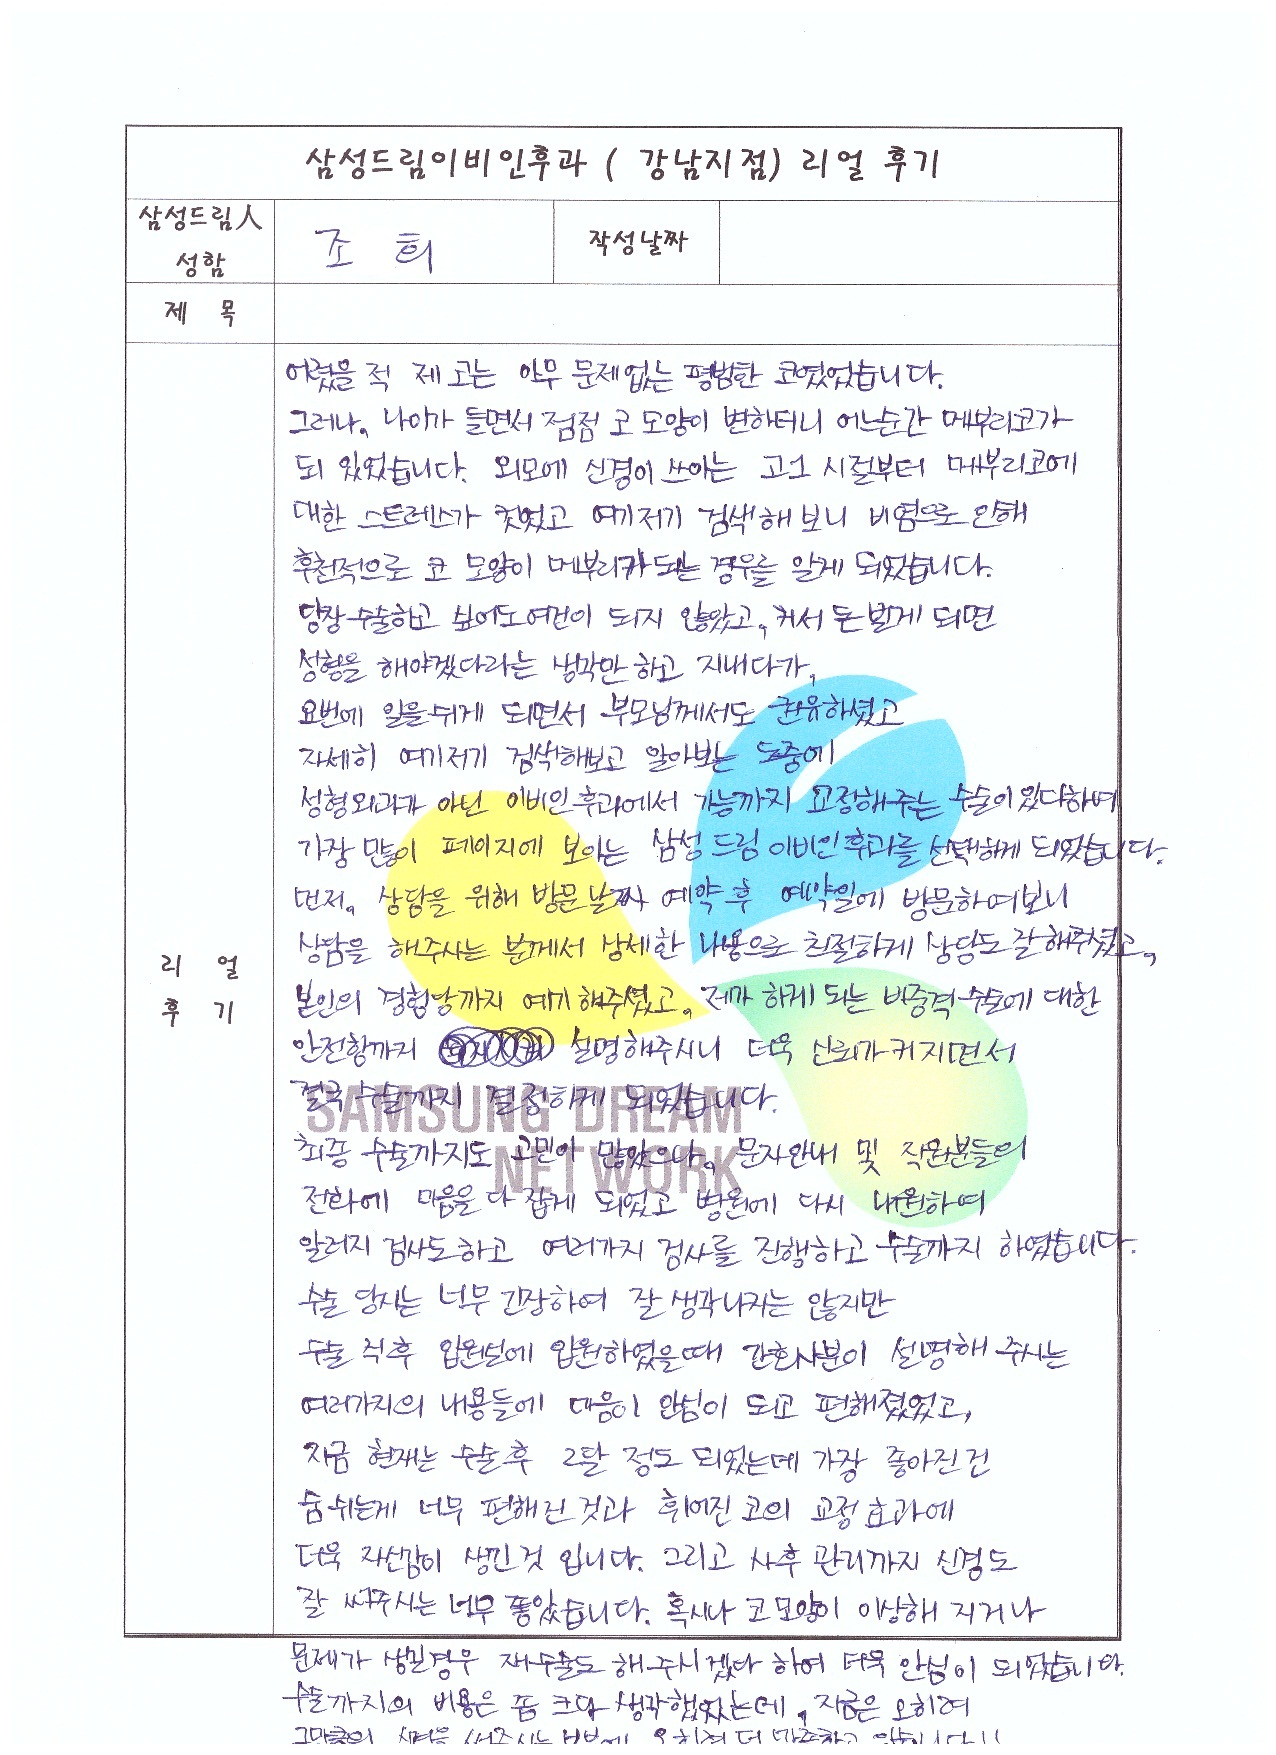 삼성드림이비인후과 ( 강남지점) 리얼 후기
삼성드림人
성함
조 희
작성날짜
제 목
리 얼
후 기
어렸을 적 제 코는 아무 문제없는 평범한 코였었습니다.
그러나, 나이가 들면서 점점 코 모양이 변하더니 어느순간 메부리코가
되 있었습니다. 외모에 신경이 쓰이는 고1 시절부터 메부리코에
대한 스트레스가 컷었고 여기저기 검색해 보니 비염으로 인해
후천적으로 코 모양이 메부리가 되는 경우를 알게 되었습니다.
당장 수술하고 싶어도 여건이 되지 않았고, 커서 돈 벌게 되면
성형을 해야겠다라는 생각만 하고 지내다가,
요번에 일을 쉬게 되면서 부모님께서도 권유하셨고
자세히 여기저기 검색해보고 알아보는 도중에
성형외과가 아닌 이비인후과에서 기능까지 교정해주는 수술이 있다하여
가장 많이 페이지에 보이는 삼성드림 이비인후과를 선택하게 되었습니다.
먼저, 상담을 위해 방문 날짜 예약 후 예약일에 방문하여보니
상담을 해주시는 분께서 상세한 내용으로 친절하게 상담도 잘 해주셨고,
본인의 경험담까지 얘기 해주셨고, 제가 하게 되는 비중격 수술에 대한
안전함까지 설명해주시니 더욱 신뢰가 커지면서
결국 수술까지 결정하게 되었습니다.
SAMSUNG DREAM
NETWORK
최종 수술까지도 고민이 많았으나, 문자안내 및 직원분들의
전화에 마음을 다 잡게 되었고 병원에 다시 내원하여
알러지 검사도 하고 여러가지 검사를 진행하고 수술까지 하였습니다.
수술 당시는 너무 긴장하여 잘 생각나지는 않지만
수술 직후 입원실에 입원하였을때 간호사분이 설명해 주시는
여러가지의 내용들에 마음이 안심이 되고 편해졌었고,
지금 현재는 수술 후 2달 정도 되었는데 가장 좋아진건
숨쉬는게 너무 편해진 것과 휘어진 코의 교정 효과에
더욱 자신감이 생긴것 입니다. 그리고 사후 관리까지 신경도
잘 써주시는 너무 좋았습니다. 혹시나 코모양이 이상해 지거나
문제가 생길경우 재수술도 해 주시겠다 하여 더욱 안심이 되었습니다.
수술까지의 비용은 좀 크다 생각했었는데, 지금은 오히려
그만큼의 신경을 써주시는 부분에 오히려 더 만족하고 있습니다!!